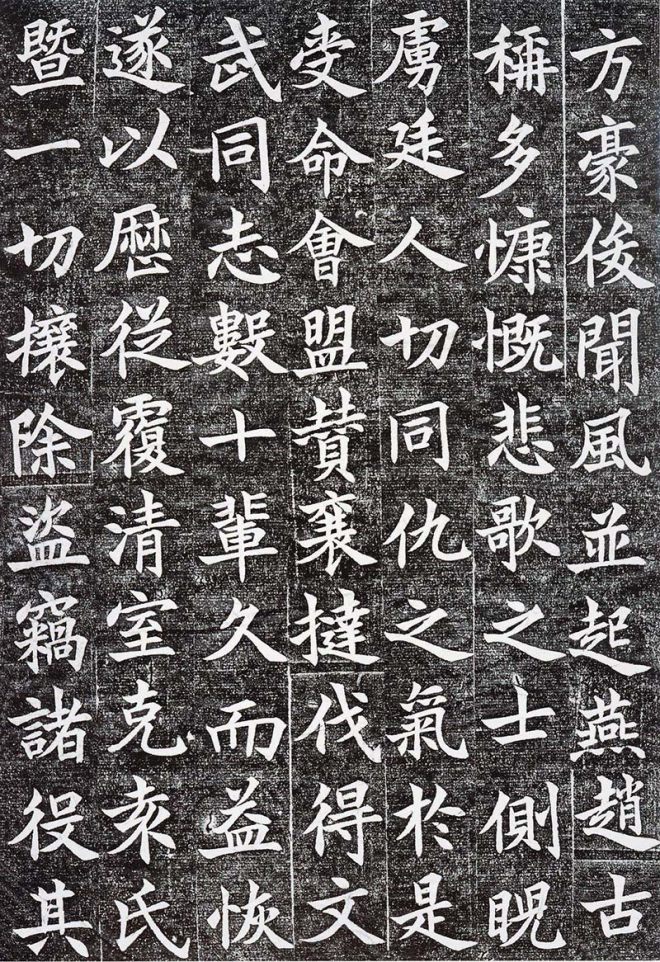 方豪俊聞風並起燕趙古
稱多慷慨悲歌之士側睨
虜廷人切同仇之氣於是
受命會盟贊襄撻伐得文
武同志數十輩久而益恢
遂以厯從覆清室克袁氏
暨一切攘除盜竊諸役其